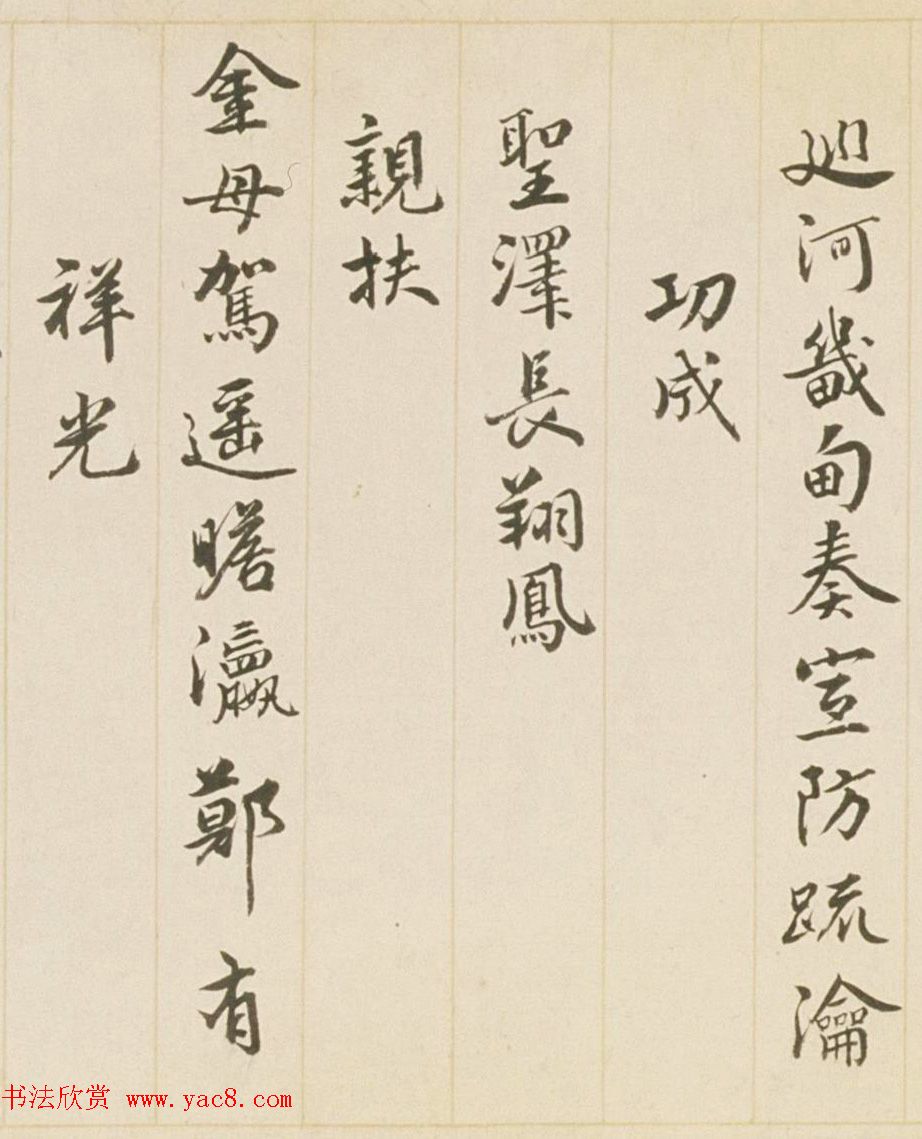 巡河畿甸奏宣防疏瀹
功成
聖澤長翔鳳
親扶
金母駕遥瞻瀛鄚有
祥光
书法欣赏 www.yac8.com